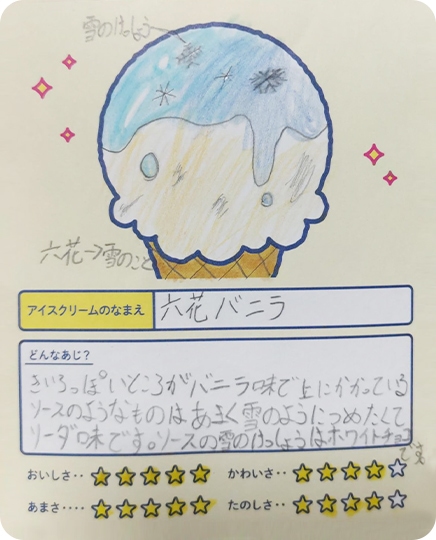 雪のけっしょう
六花→雪のこと
アイスクリームのなまえ 六花バニラ
どんなあじ?
きいろっぽいところがバニラ味で上にかかっている
ソースのようなものはあまく雪のようにつめたくて
ソーダ味です。ソースの雪のけっしょうはホワイトチョコ
です
おいしさ・・ ★★★★★ かわいさ・・ ★★★★☆
あまさ・・・・ ★★★★★ たのしさ・・ ★★★★☆